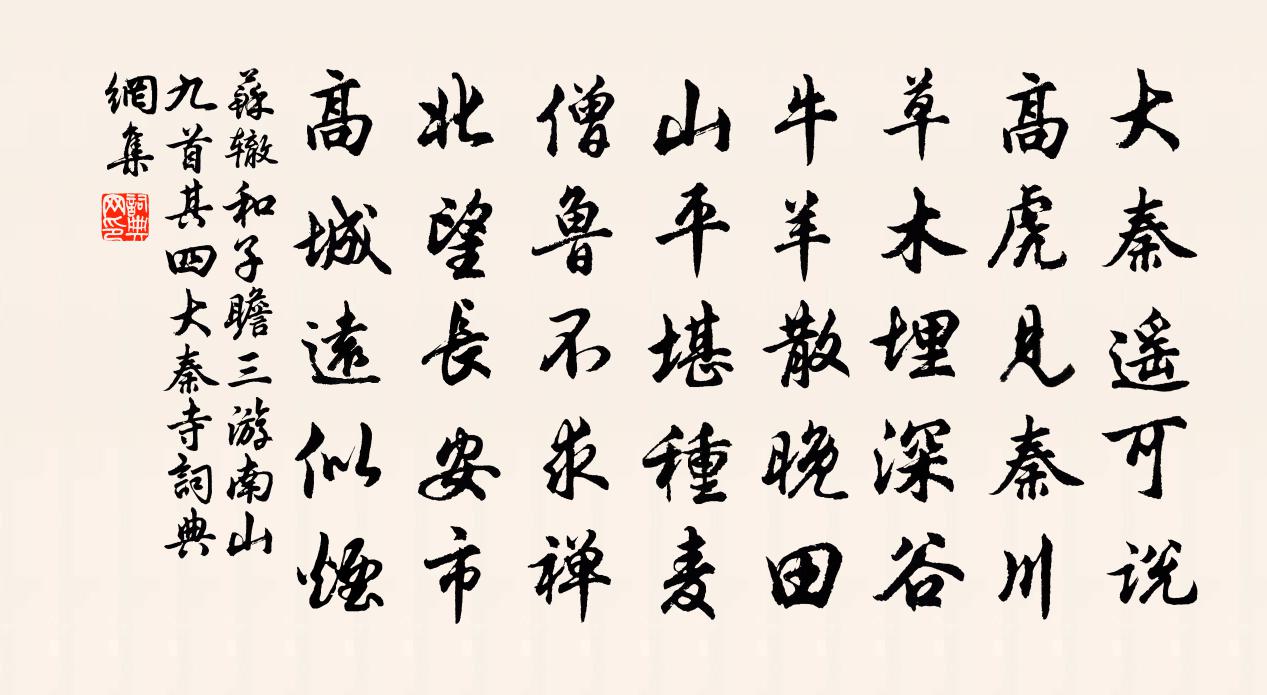 大秦遥可说
高虎见秦川
草木埋深谷
牛羊散晚田
山平堪種麦
僧魯不求禅
北望長安市
高城遠似煙
蘇辙和子瞻三游南山
九首其四大秦寺詞典
網集
詞典
网印